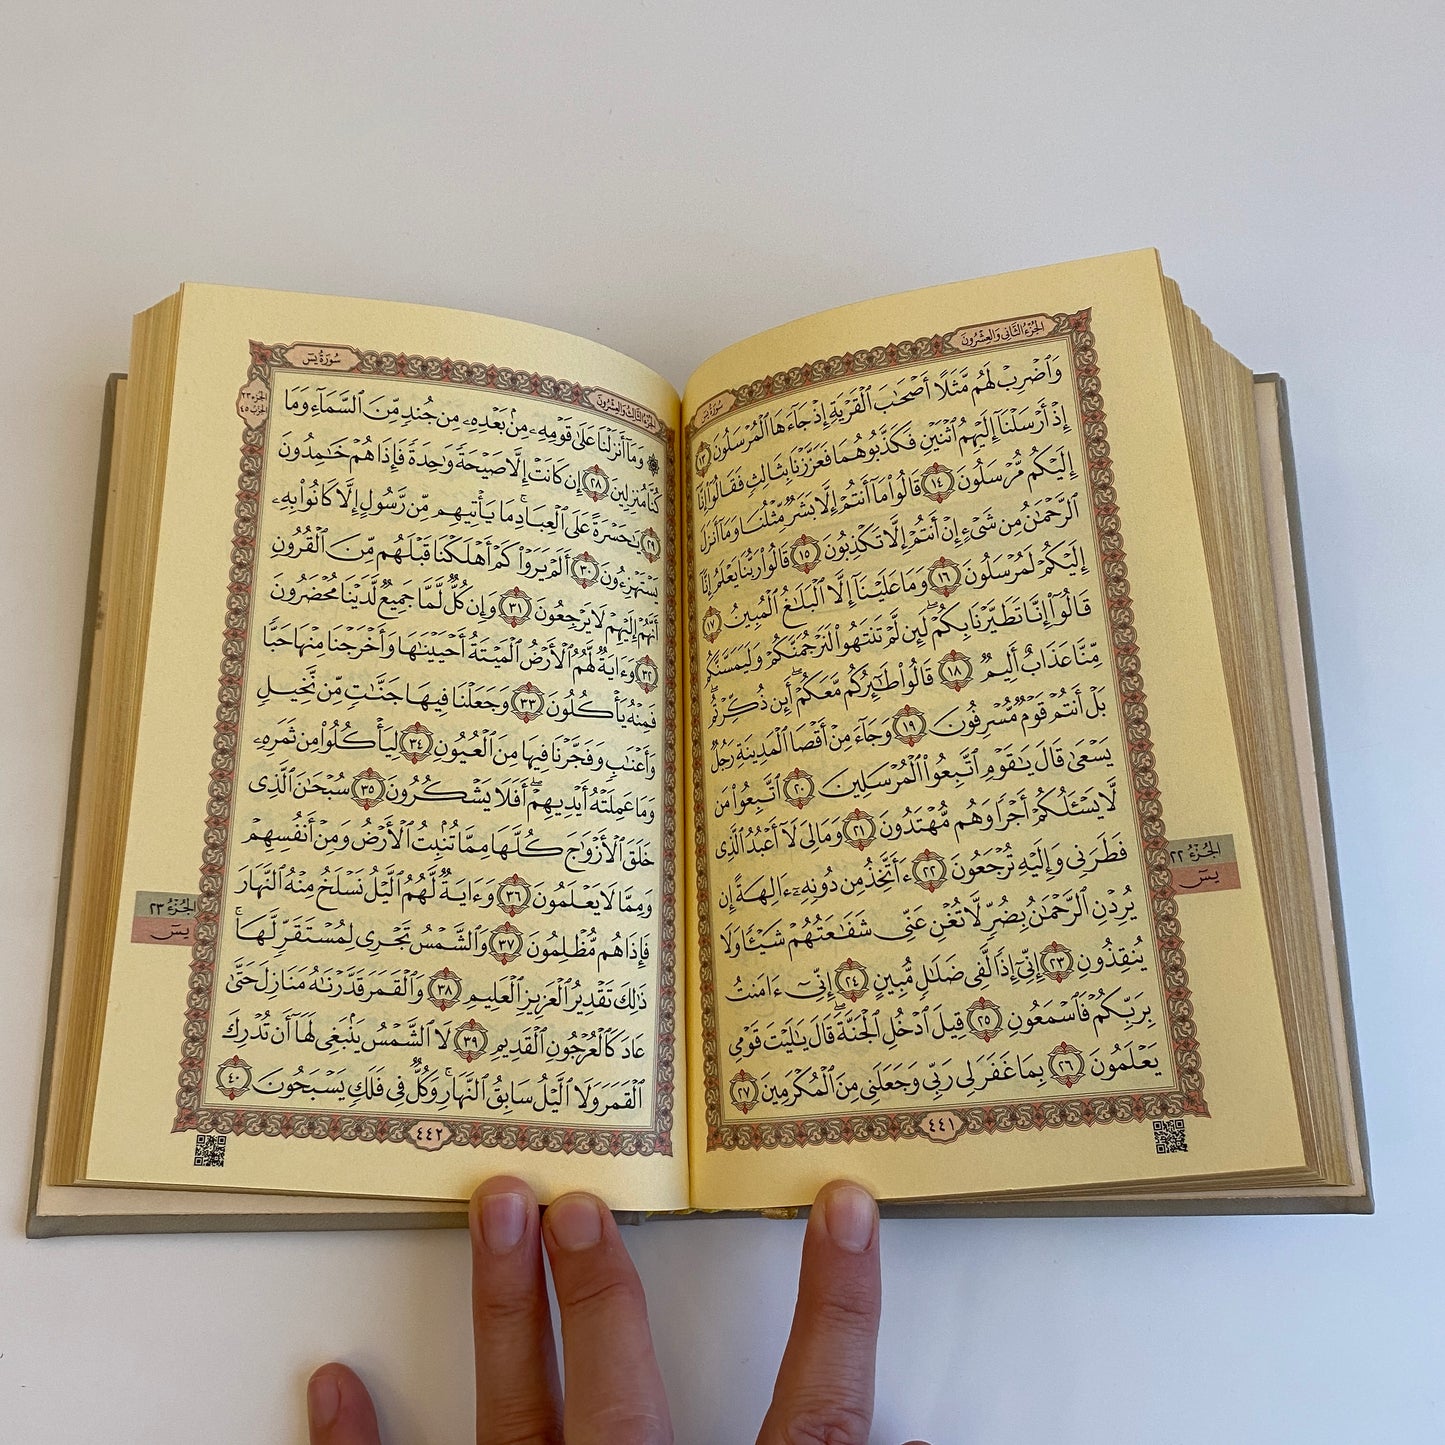 الجُزْءُ الثَّانِي وَالعِشْرُونَ
سُورَةُ يسٓ
وَٱضْرِبْ لَهُم مَّثَلًا أَصْحَٰبَ ٱلْقَرْيَةِ إِذْ جَآءَهَا ٱلْمُرْسَلُونَ ١٣
إِذْ أَرْسَلْنَآ إِلَيْهِمُ ٱثْنَيْنِ فَكَذَّبُوهُمَا فَعَزَّزْنَا بِثَالِثٍ فَقَالُوٓا۟ إِنَّآ
إِلَيْكُم مُّرْسَلُونَ ١٤ قَالُوا۟ مَآ أَنتُمْ إِلَّا بَشَرٌ مِّثْلُنَا وَمَآ أَنزَلَ
ٱلرَّحْمَٰنُ مِن شَىْءٍ إِنْ أَنتُمْ إِلَّا تَكْذِبُونَ ١٥ قَالُوا۟ رَبُّنَا يَعْلَمُ إِنَّآ
إِلَيْكُمْ لَمُرْسَلُونَ ١٦ وَمَا عَلَيْنَآ إِلَّا ٱلْبَلَٰغُ ٱلْمُبِينُ ١٧
قَالُوٓا۟ إِنَّا تَطَيَّرْنَا بِكُمْ ۖ لَئِن لَّمْ تَنتَهُوا۟ لَنَرْجُمَنَّكُمْ وَلَيَمَسَّنَّكُم
مِّنَّا عَذَابٌ أَلِيمٌ ١٨ قَالُوا۟ طَٰٓئِرُكُم مَّعَكُمْ ۚ أَئِن ذُكِّرْتُم ۚ
بَلْ أَنتُمْ قَوْمٌ مُّسْرِفُونَ ١٩ وَجَآءَ مِنْ أَقْصَا ٱلْمَدِينَةِ رَجُلٌ
يَسْعَىٰ قَالَ يَٰقَوْمِ ٱتَّبِعُوا۟ ٱلْمُرْسَلِينَ ٢٠ ٱتَّبِعُوا۟ مَن
لَّا يَسْـَٔلُكُمْ أَجْرًا وَهُم مُّهْتَدُونَ ٢١ وَمَا لِىَ لَآ أَعْبُدُ ٱلَّذِى
فَطَرَنِى وَإِلَيْهِ تُرْجَعُونَ ٢٢ ءَأَتَّخِذُ مِن دُونِهِۦٓ ءَالِهَةً إِن
يُرِدْنِ ٱلرَّحْمَٰنُ بِضُرٍّ لَّا تُغْنِ عَنِّى شَفَٰعَتُهُمْ شَيْـًٔا وَلَا
يُنقِذُونِ ٢٣ إِنِّىٓ إِذًا لَّفِى ضَلَٰلٍ مُّبِينٍ ٢٤ إِنِّىٓ ءَامَنتُ
بِرَبِّكُمْ فَٱسْمَعُونِ ٢٥ قِيلَ ٱدْخُلِ ٱلْجَنَّةَ ۖ قَالَ يَٰلَيْتَ قَوْمِى
يَعْلَمُونَ ٢٦ بِمَا غَفَرَ لِى رَبِّى وَجَعَلَنِى مِنَ ٱلْمُكْرَمِينَ ٢٧
٤٤١
الجُزْءُ ٢٢
يسٓ
الجُزْءُ الثَّالِثُ وَالعِشْرُونَ
سُورَةُ يسٓ
الجُزْءُ ٢٣
الحِزْبُ ٤٥
۞ وَمَآ أَنزَلْنَا عَلَىٰ قَوْمِهِۦ مِنۢ بَعْدِهِۦ مِن جُندٍ مِّنَ ٱلسَّمَآءِ وَمَا
كُنَّا مُنزِلِينَ ٢٨ إِن كَانَتْ إِلَّا صَيْحَةً وَٰحِدَةً فَإِذَا هُمْ خَٰمِدُونَ
٢٩ يَٰحَسْرَةً عَلَى ٱلْعِبَادِ ۚ مَا يَأْتِيهِم مِّن رَّسُولٍ إِلَّا كَانُوا۟ بِهِۦ
يَسْتَهْزِءُونَ ٣٠ أَلَمْ يَرَوْا۟ كَمْ أَهْلَكْنَا قَبْلَهُم مِّنَ ٱلْقُرُونِ
أَنَّهُمْ إِلَيْهِمْ لَا يَرْجِعُونَ ٣١ وَإِن كُلٌّ لَّمَّا جَمِيعٌ لَّدَيْنَا مُحْضَرُونَ
٣٢ وَءَايَةٌ لَّهُمُ ٱلْأَرْضُ ٱلْمَيْتَةُ أَحْيَيْنَٰهَا وَأَخْرَجْنَا مِنْهَا حَبًّا
فَمِنْهُ يَأْكُلُونَ ٣٣ وَجَعَلْنَا فِيهَا جَنَّٰتٍ مِّن نَّخِيلٍ
وَأَعْنَٰبٍ وَفَجَّرْنَا فِيهَا مِنَ ٱلْعُيُونِ ٣٤ لِيَأْكُلُوا۟ مِن ثَمَرِهِۦ
وَمَا عَمِلَتْهُ أَيْدِيهِمْ ۖ أَفَلَا يَشْكُرُونَ ٣٥ سُبْحَٰنَ ٱلَّذِى
خَلَقَ ٱلْأَزْوَٰجَ كُلَّهَا مِمَّا تُنۢبِتُ ٱلْأَرْضُ وَمِنْ أَنفُسِهِمْ
وَمِمَّا لَا يَعْلَمُونَ ٣٦ وَءَايَةٌ لَّهُمُ ٱلَّيْلُ نَسْلَخُ مِنْهُ ٱلنَّهَارَ
فَإِذَا هُم مُّظْلِمُونَ ٣٧ وَٱلشَّمْسُ تَجْرِى لِمُسْتَقَرٍّ لَّهَا ۚ
ذَٰلِكَ تَقْدِيرُ ٱلْعَزِيزِ ٱلْعَلِيمِ ٣٨ وَٱلْقَمَرَ قَدَّرْنَٰهُ مَنَازِلَ حَتَّىٰ
عَادَ كَٱلْعُرْجُونِ ٱلْقَدِيمِ ٣٩ لَا ٱلشَّمْسُ يَنۢبَغِى لَهَآ أَن تُدْرِكَ
ٱلْقَمَرَ وَلَا ٱلَّيْلُ سَابِقُ ٱلنَّهَارِ ۚ وَكُلٌّ فِى فَلَكٍ يَسْبَحُونَ ٤٠
٤٤٢
الجُزْءُ ٢٣
يسٓ